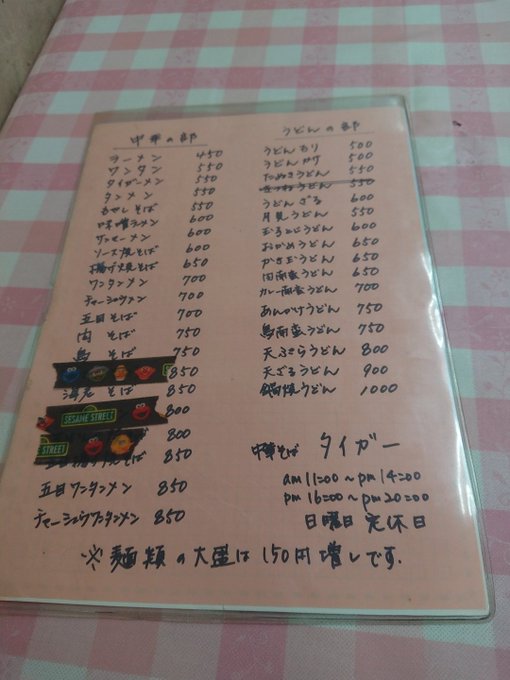 中華の部
ラーメン 450
ワンタン 550
タイガーメン 550
タンメン 550
もやしそば 550
味噌ラーメン 600
サンマーメン 600
ソース焼そば 600
揚げ焼そば 650
ワンタンメン 700
チャーシューメン 700
五目そば 700
肉そば 750
鳥そば 750
850
海老そば 850
SESAME STREET 800
STREET 800
850
五目ワンタンメン 850
チャーシュウワンタンメン 850
うどんの部
うどんもり 500
うどんかけ 500
たぬきうどん 550
きつねうどん 550
うどんざる 600
月見うどん 600
玉子とじうどん 600
おかめうどん 650
かき玉うどん 650
肉南蛮うどん 650
カレー南蛮うどん 700
あんかけうどん 750
鳥南蛮うどん 750
天ぷらうどん 800
天ざるうどん 900
鍋焼うどん 1000
中華そば タイガー
am11:00~pm14:00
pm16:00~pm20:00
日曜日定休日
※麺類の大盛は150円増しです.